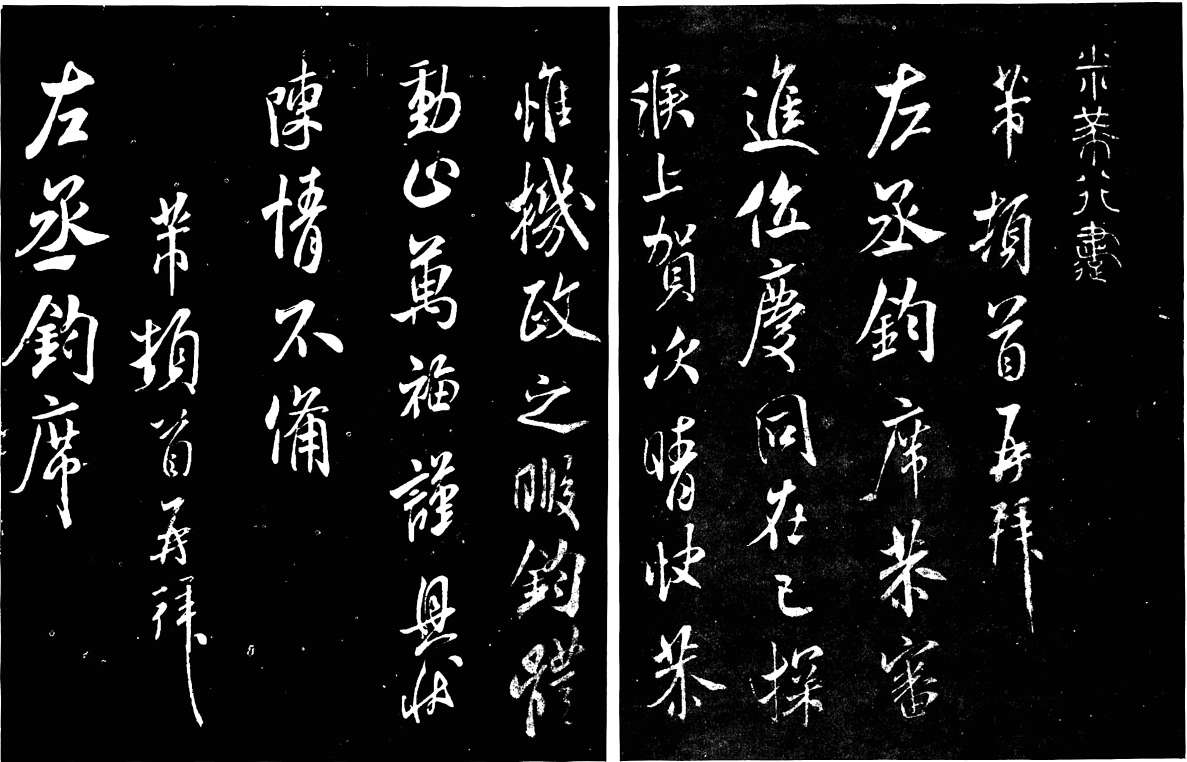 米芾行書
芾頓首再拜
左丞鈞席恭審
進位慶同在已探
候上賀次晴快恭
惟機政之暇鈞體
動止萬福謹具狀
陳情不備
芾頓首再拜
左丞鈞席